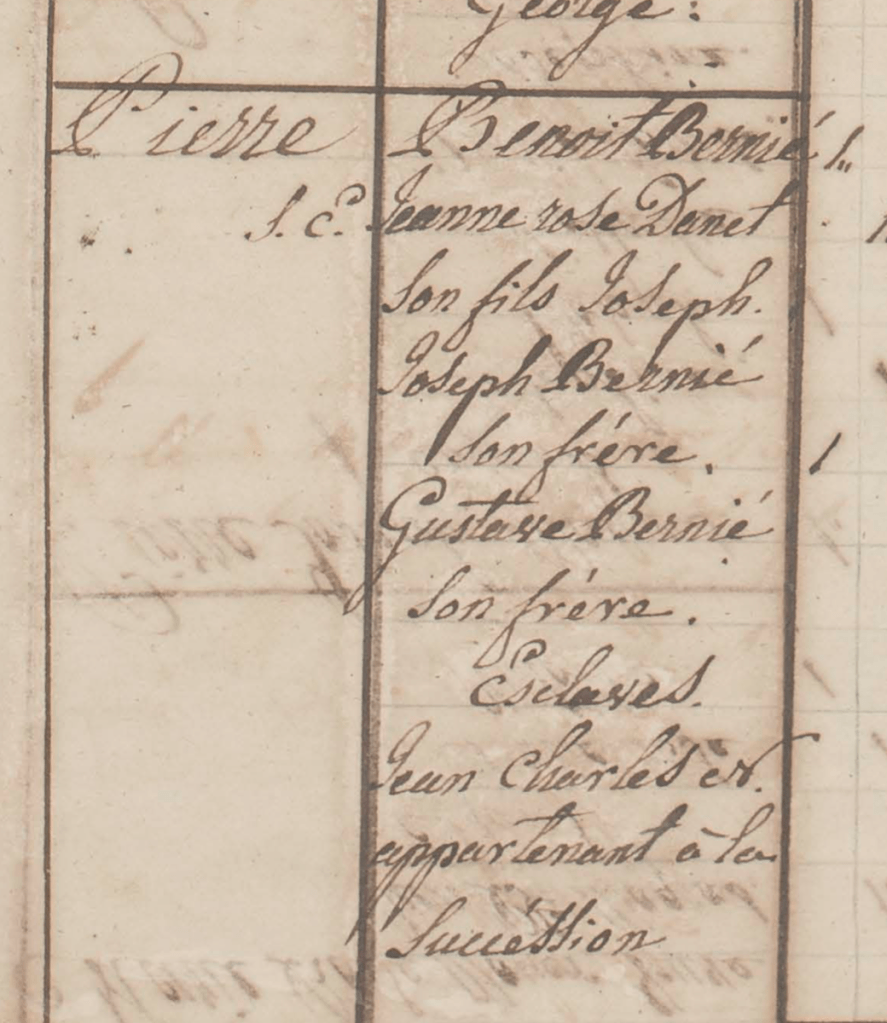 George.
Pierre Benoit Bernié 1..
S. C. Jeanne rose Danet
Son fils Joseph.
Joseph Bernié
Son frére. 1
Gustave Bernié
Son frére.
Esclaves.
Jean Charles
appartenant à la
Succéssion